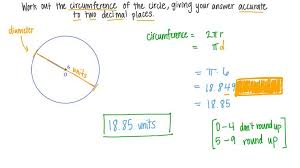 Work out the circumference of the circle, giving your answer accurate
to two decimal places.
diameter
6 units
circumference = 2πr
= πd
= π·6
= 18.849
= 18.85
18.85 units
0-4 don't round up
5-9 round up